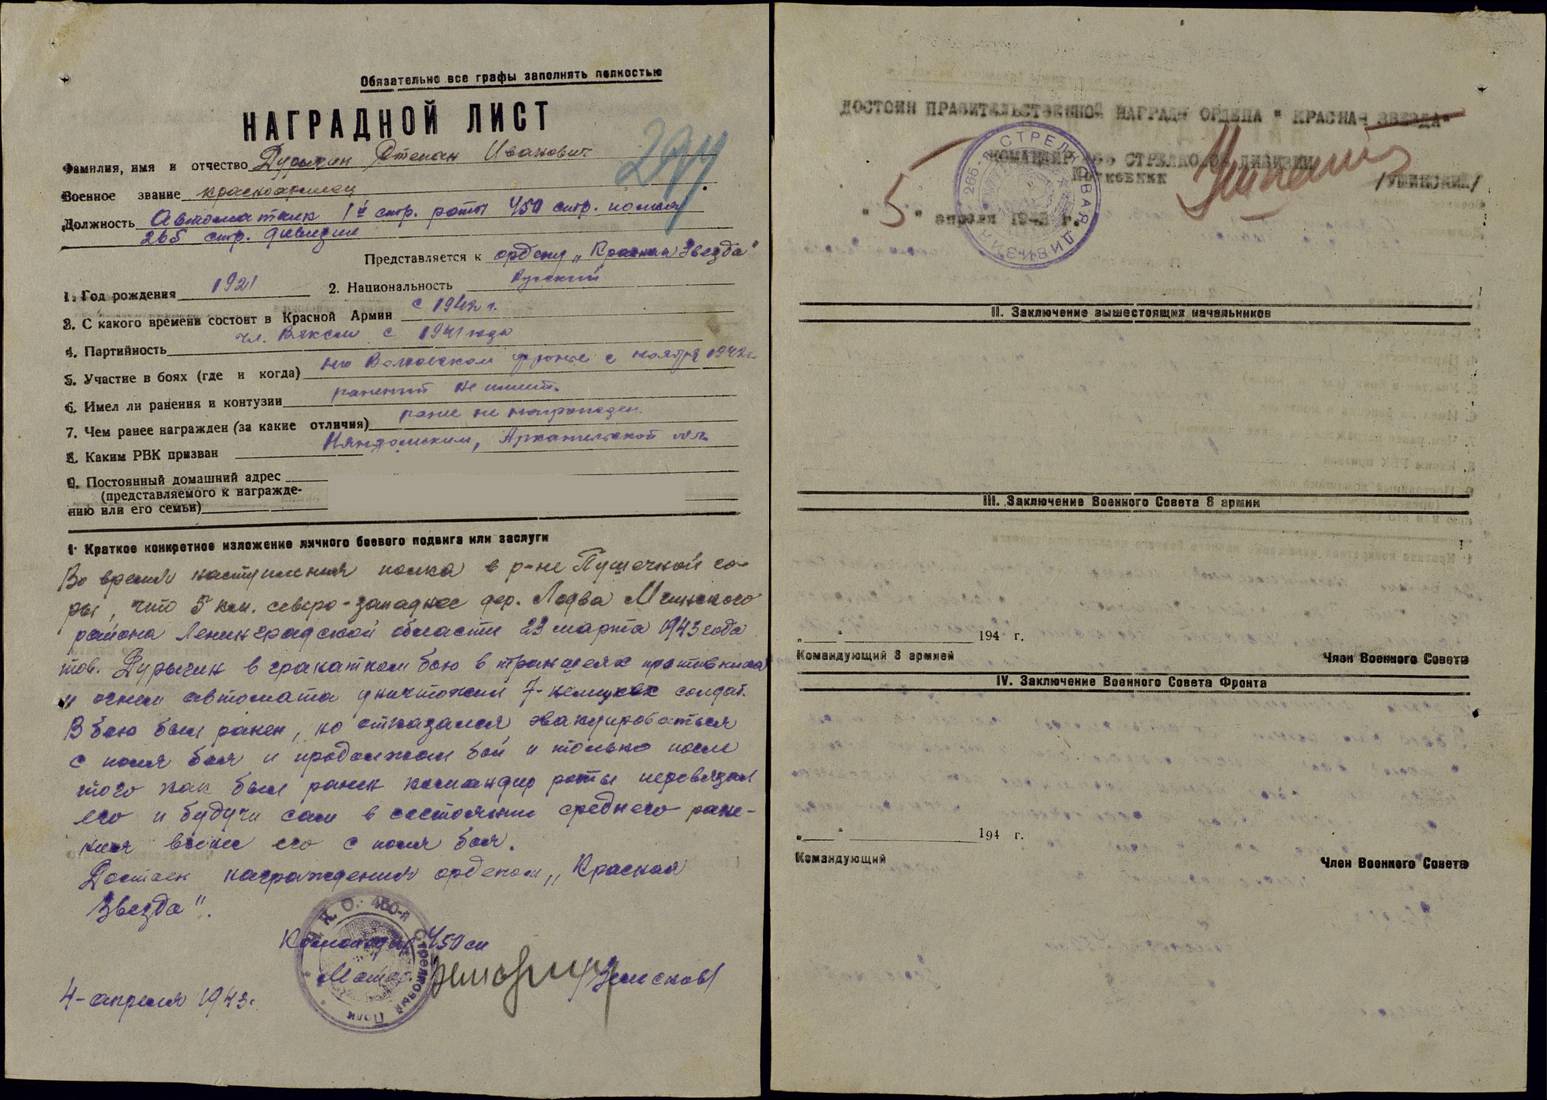 Обязательно все графы заполнять полностью
НАГРАДНОЙ ЛИСТ
Фамилия, имя и отчество Дурынин Степан Иванович
294
Военное звание красноармеец
Должность Автоматчик 1й стр. роты 450 стр. полка
265 стр. дивизии
Представляется к ордену „Красная Звезда"
1. Год рождения 1921 2. Национальность Русский
3. С какого времени состоит в Красной Армии с 1942 г.
4. Партийность чл. ВЛКСМ с 1941 года
5. Участие в боях (где и когда) на Волховском фронте с ноября 1942 г.
6. Имел ли ранения и контузии ранений не имеет.
7. Чем ранее награжден (за какие отличия) ранее не награжден.
8. Каким РВК призван Няндомским, Архангельской обл.
9. Постоянный домашний адрес
(представляемого к награжде-
нию или его семьи)
1 Краткое конкретное изложение личного боевого подвига или заслуги
Во время наступления полка в р-не Пушечной го-
ры, что 5 км. северо-западнее дер. Лодва Мгинского
района Ленинградской области 23 марта 1943 года
тов. Дурынин в гранатном бою в траншеях противника
и огнем автомата уничтожил 7 немецких солдат.
В бою был ранен, но отказался эвакуироваться
с поля боя и продолжал бой и только после
того как был ранен командир роты перевязал
его и будучи сам в состоянии среднего ране-
ния вынес его с поля боя.
Достоин награждения орденом „Красная
Звезда".
Командир 450 сп
Н.К.О. 450-й Стрелковый Полк
4 апреля 1943 г.
ДОСТОИН ПРАВИТЕЛЬСТВЕННОЙ НАГРАДЫ ОРДЕНА " КРАСНАЯ ЗВЕЗДА"
КОМАНДИР 265 СТРЕЛКОВОЙ ДИВИЗИИ
ПОЛКОВНИК /УШИНСКИЙ/
" 5 " апреля 1943 г.
265-я СТРЕЛКОВАЯ ДИВИЗИЯ
II. Заключение вышестоящих начальников
III. Заключение Военного Совета 8 армии
„ " 194 г.
Командующий 8 армией Член Военного Совета
IV. Заключение Военного Совета Фронта
„ " 194 г.
Командующий Член Военного Совета